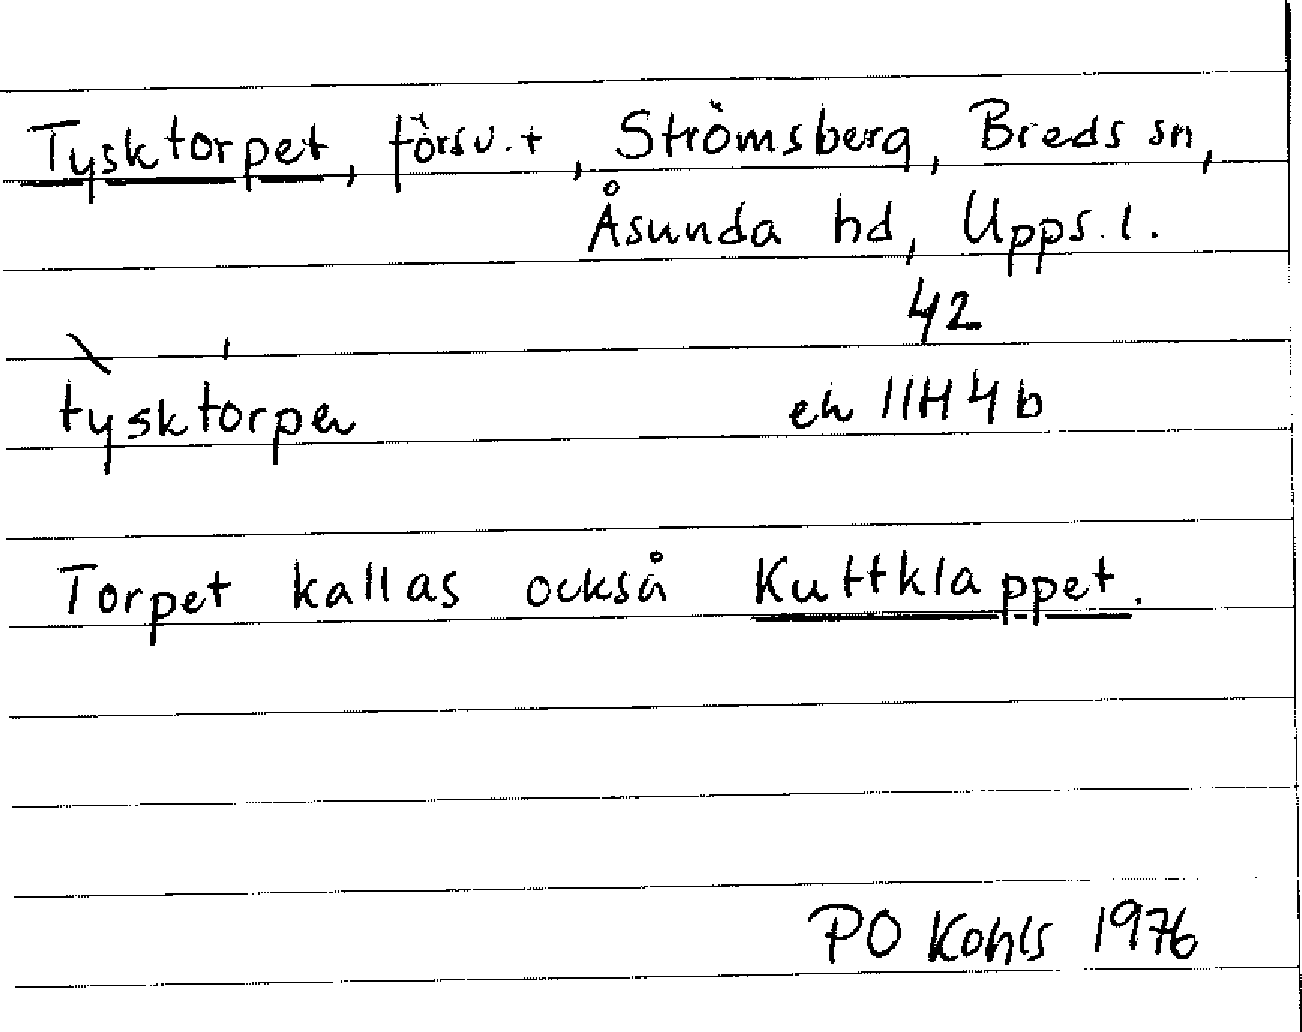 Tysktorpet, försv. t, Strömsberg, Breds sn,
Åsunda hd, Upps. l.
42
tysktorpe
ek 11H4b
Torpet kallas också Kuttklappet.
PO Kohls 1976